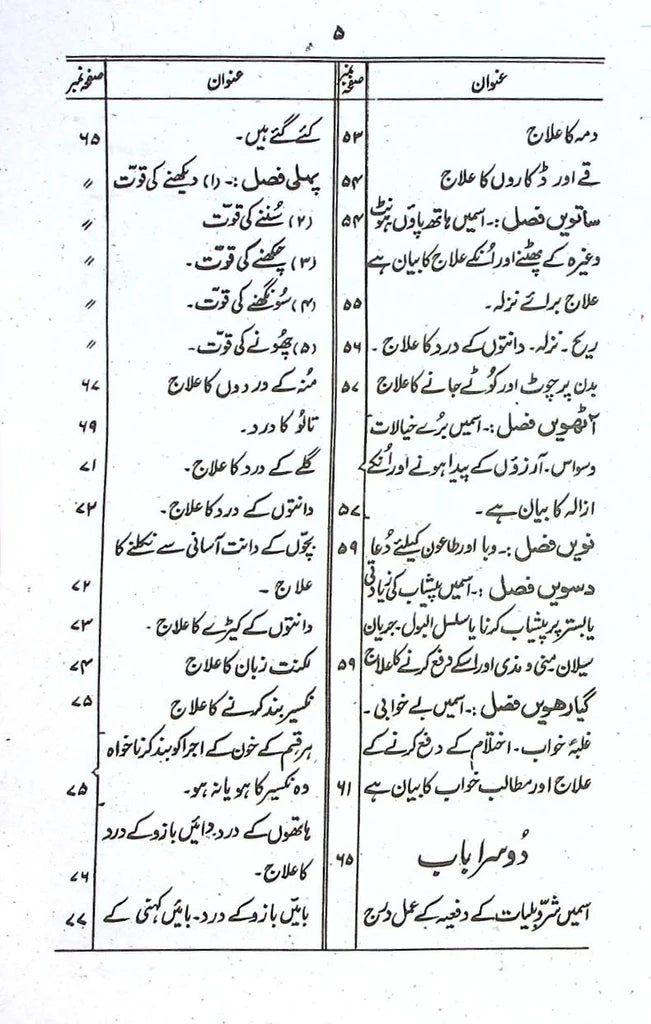 ۵
عنوان صفحہ نمبر
دمہ کا علاج ۵۳
قے اور ڈکاروں کا علاج ۵۴
ساتویں فصل :۔ اسمیں ہاتھ پاؤں ہونٹ ۵۴
وغیرہ کے پھٹنے اور اُنکے علاج کا بیان ہے
علاج برائے نزلہ۔ ۵۵
ریح۔ نزلہ۔ دانتوں کے درد کا علاج۔ ۵۶
بدن پر چوٹ اور کوٹے جانے کا علاج ۵۷
آٹھویں فصل :۔ اسمیں بُرے خیالات
وسواس۔ آرزؤں کے پیدا ہونے اور اُنکے
ازالہ کا بیان ہے۔ ۵۷
نویں فصل :۔ وبا اور طاعون کیلئے دُعا ۵۹
دسویں فصل :۔ اسمیں پیشاب کی زیادتی
یا بستر پر پیشاب کرنا یا سلسل البول۔ جریان
سیلان منی و مذی اور اسکے دفع کرنے کا علاج ۵۹
گیارھویں فصل :۔ اسمیں بے خوابی۔
غلبۂ خواب۔ احتلام کے دفع کرنے کے
علاج اور مطالب خواب کا بیان ہے ۶۱
دُوسرا باب ۶۵
اسمیں شر و بلیات کے دفعیہ کے عمل درج
عنوان صفحہ نمبر
کئے گئے ہیں۔ ۶۵
پہلی فصل :۔ (۱) دیکھنے کی قوّت 〃
(۲) سُننے کی قوّت 〃
(۳) چکھنے کی قوّت۔ 〃
(۴) سونگھنے کی قوّت۔ 〃
(۵) چھُونے کی قوّت۔ 〃
مُنہ کے دردوں کا علاج ۶۷
تالُو کا درد۔ ۶۹
گلے کے درد کا علاج۔ ۷۱
دانتوں کے درد کا علاج۔ ۷۲
بچّوں کے دانت آسانی سے نکلنے کا
علاج۔ ۷۲
دانتوں کے کیڑے کا علاج۔ ۷۳
لکنت زبان کا علاج ۷۴
نکسیر بند کرنے کا علاج ۷۵
ہر قسم کے خون کے اجرا کو بند کرنا خواہ
وہ نکسیر کا ہو یا نہ ہو۔ ۷۵
ہاتھوں کے درد۔ دائیں بازو کے درد
کا علاج۔ ۷۶
بائیں بازو کے درد۔ بائیں کہنی کے ۷۷